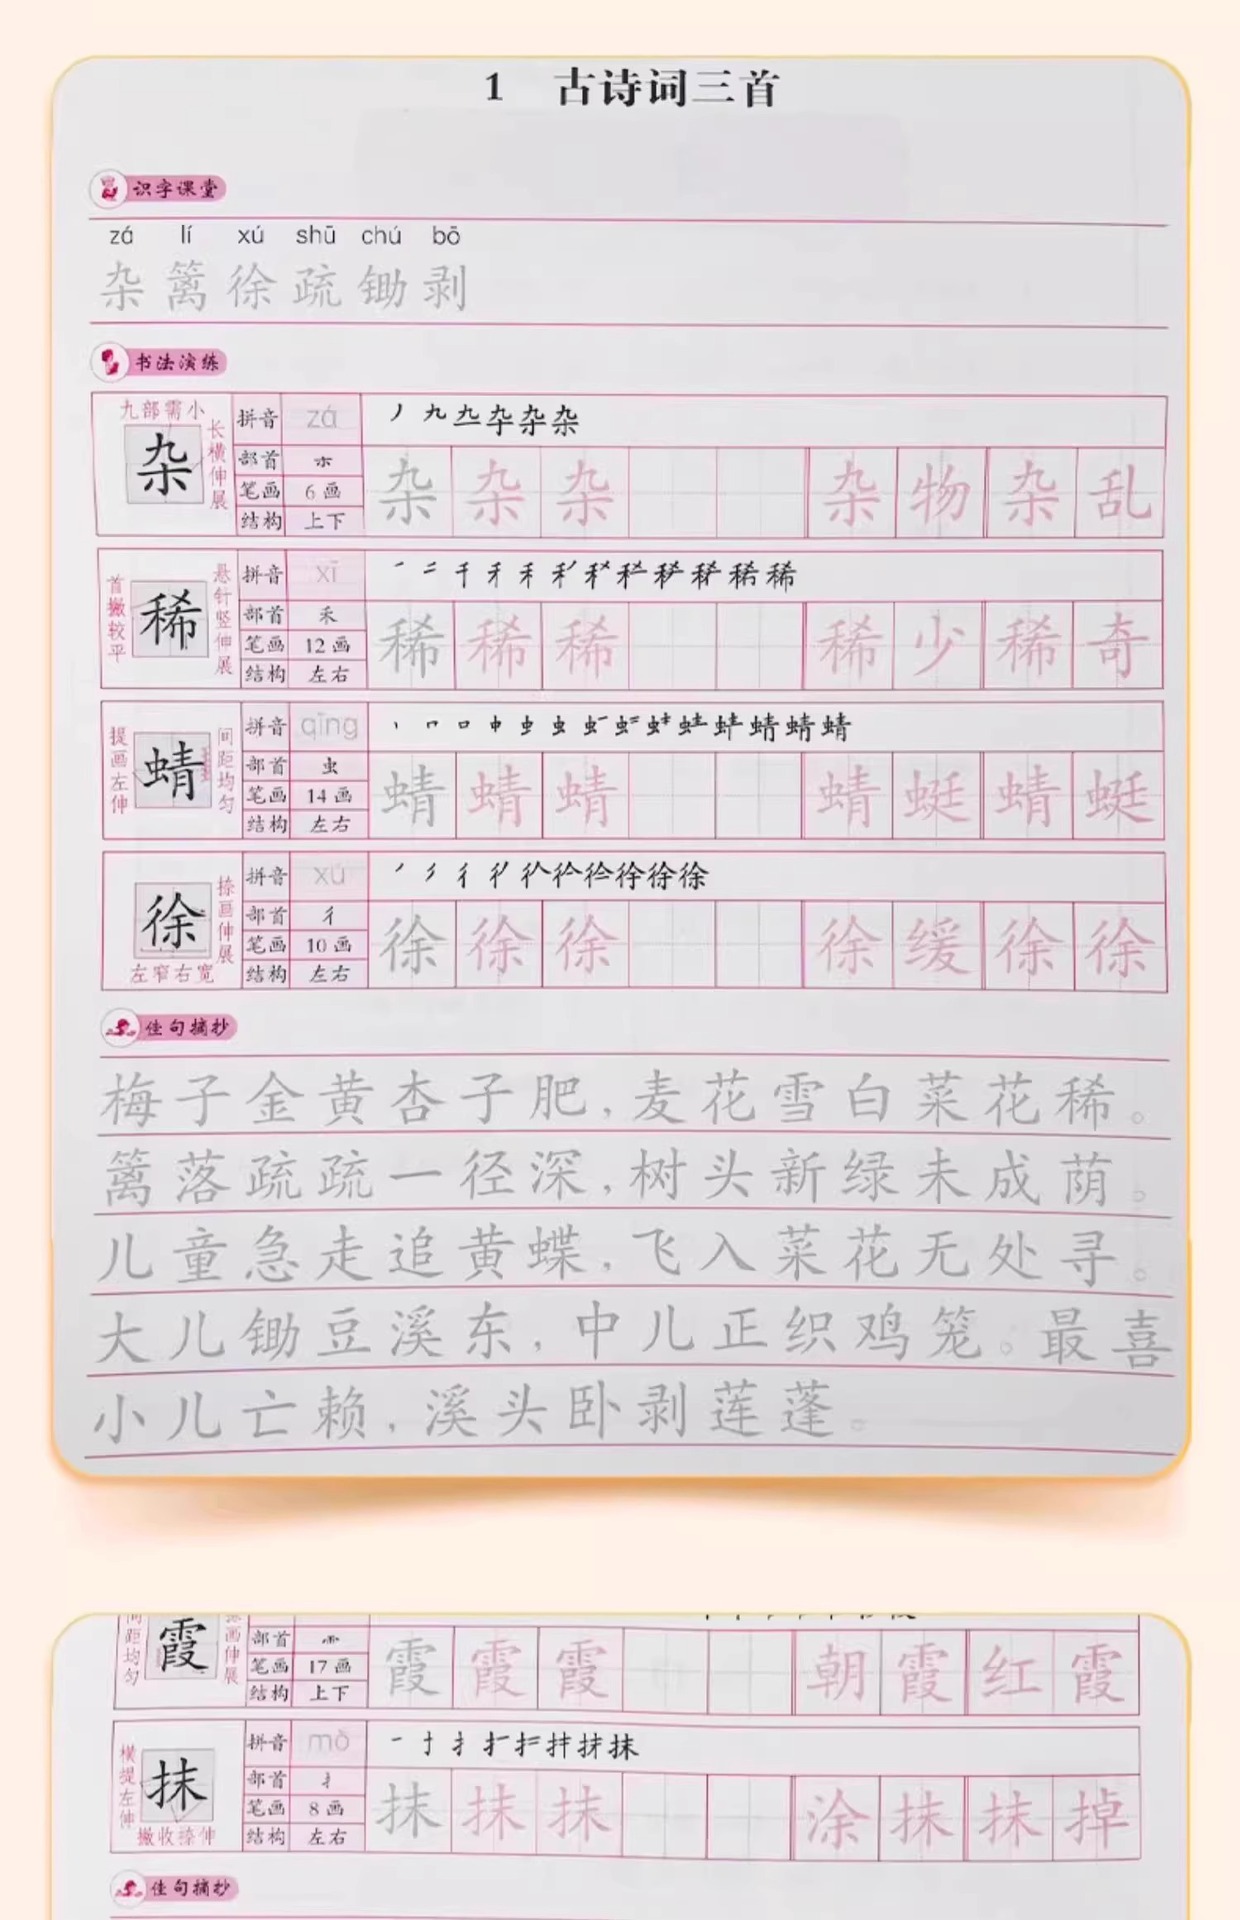 1 古诗词三首
识字课堂
zá lí xú shū chú bō
杂 篱 徐 疏 锄 剥
书法演练
九部需小
杂
长横伸展
拼音 zá
丿 九 杂
部首
笔画 6画
结构 上下
杂 杂 杂 杂 物 杂 乱
首撇较平
稀
悬针竖伸展
拼音 xī
一 二 千 禾 禾 稀
部首 禾
笔画 12画
结构 左右
稀 稀 稀 稀 少 稀 奇
提画左伸
蜻
间距均匀
拼音 qīng
丨 口 口 中 虫 虫 蜻
部首 虫
笔画 14画
结构 左右
蜻 蜻 蜻 蜻 蜓 蜻 蜓
徐
捺画伸展
左窄右宽
拼音 xú
丿 彳 徐
部首 彳
笔画 10画
结构 左右
徐 徐 徐 徐 缓 徐 徐
佳句摘抄
梅子金黄杏子肥,麦花雪白菜花稀。
篱落疏疏一径深,树头新绿未成荫。
儿童急走追黄蝶,飞入菜花无处寻。
大儿锄豆溪东,中儿正织鸡笼。最喜
小儿亡赖,溪头卧剥莲蓬。
间距均匀
霞
捺画伸展
部首
笔画 17画
结构 上下
霞 霞 霞 朝 霞 红 霞
横提左伸
抹
撇收捺伸
拼音 mǒ
一 扌 抹
部首 扌
笔画 8画
结构 左右
抹 抹 抹 涂 抹 抹 掉
佳句摘抄